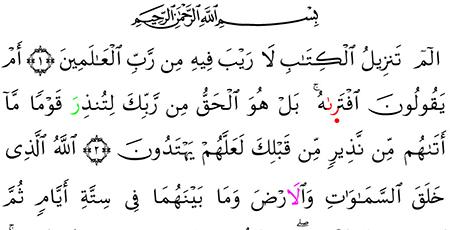 بِسْمِ ٱللَّهِ ٱلرَّحْمَٰنِ ٱلرَّحِيمِ
الٓمٓ تَنزِيلُ ٱلْكِتَٰبِ لَا رَيْبَ فِيهِ مِن رَّبِّ ٱلْعَٰلَمِينَ ﴿١﴾ أَمْ
يَقُولُونَ ٱفْتَرِىٰهُ ۚ بَلْ هُوَ ٱلْحَقُّ مِن رَّبِّكَ لِتُنذِرَ قَوْمًا مَّآ
أَتَىٰهُم مِّن نَّذِيرٍ مِّن قَبْلِكَ لَعَلَّهُمْ يَهْتَدُونَ ﴿٢﴾ ٱللَّهُ ٱلَّذِى
خَلَقَ ٱلسَّمَٰوَٰتِ وَٱلَارْضَ وَمَا بَيْنَهُمَا فِى سِتَّةِ أَيَّامٍ ثُمَّ